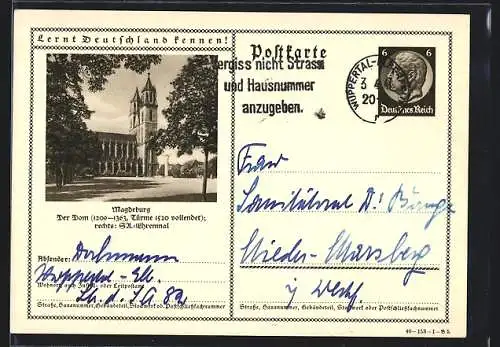 Lernt Deutschland kennen!
Magdeburg
Der Dom (1209—1363, Türme 1520 vollendet);
rechts: SA.-Ehrenmal
Absender: Dochmann
Wuppertal-Elb.
Wohnort, auch Zustell- oder Leitpostamt
Str. d. SA 82
Straße, Hausnummer, Gebäudeteil, Stockwerk od. Postschließfachnummer
Postkarte
Vergiss nicht Strasse
und Hausnummer
anzugeben.
WUPPERTAL-
20-
6 6
Deutsches Reich
Frau
Sanitätsrat Dr.
Nieder-Marsberg
i/ Westf.
Straße, Hausnummer, Gebäudeteil, Stockwerk oder Postschließfachnummer